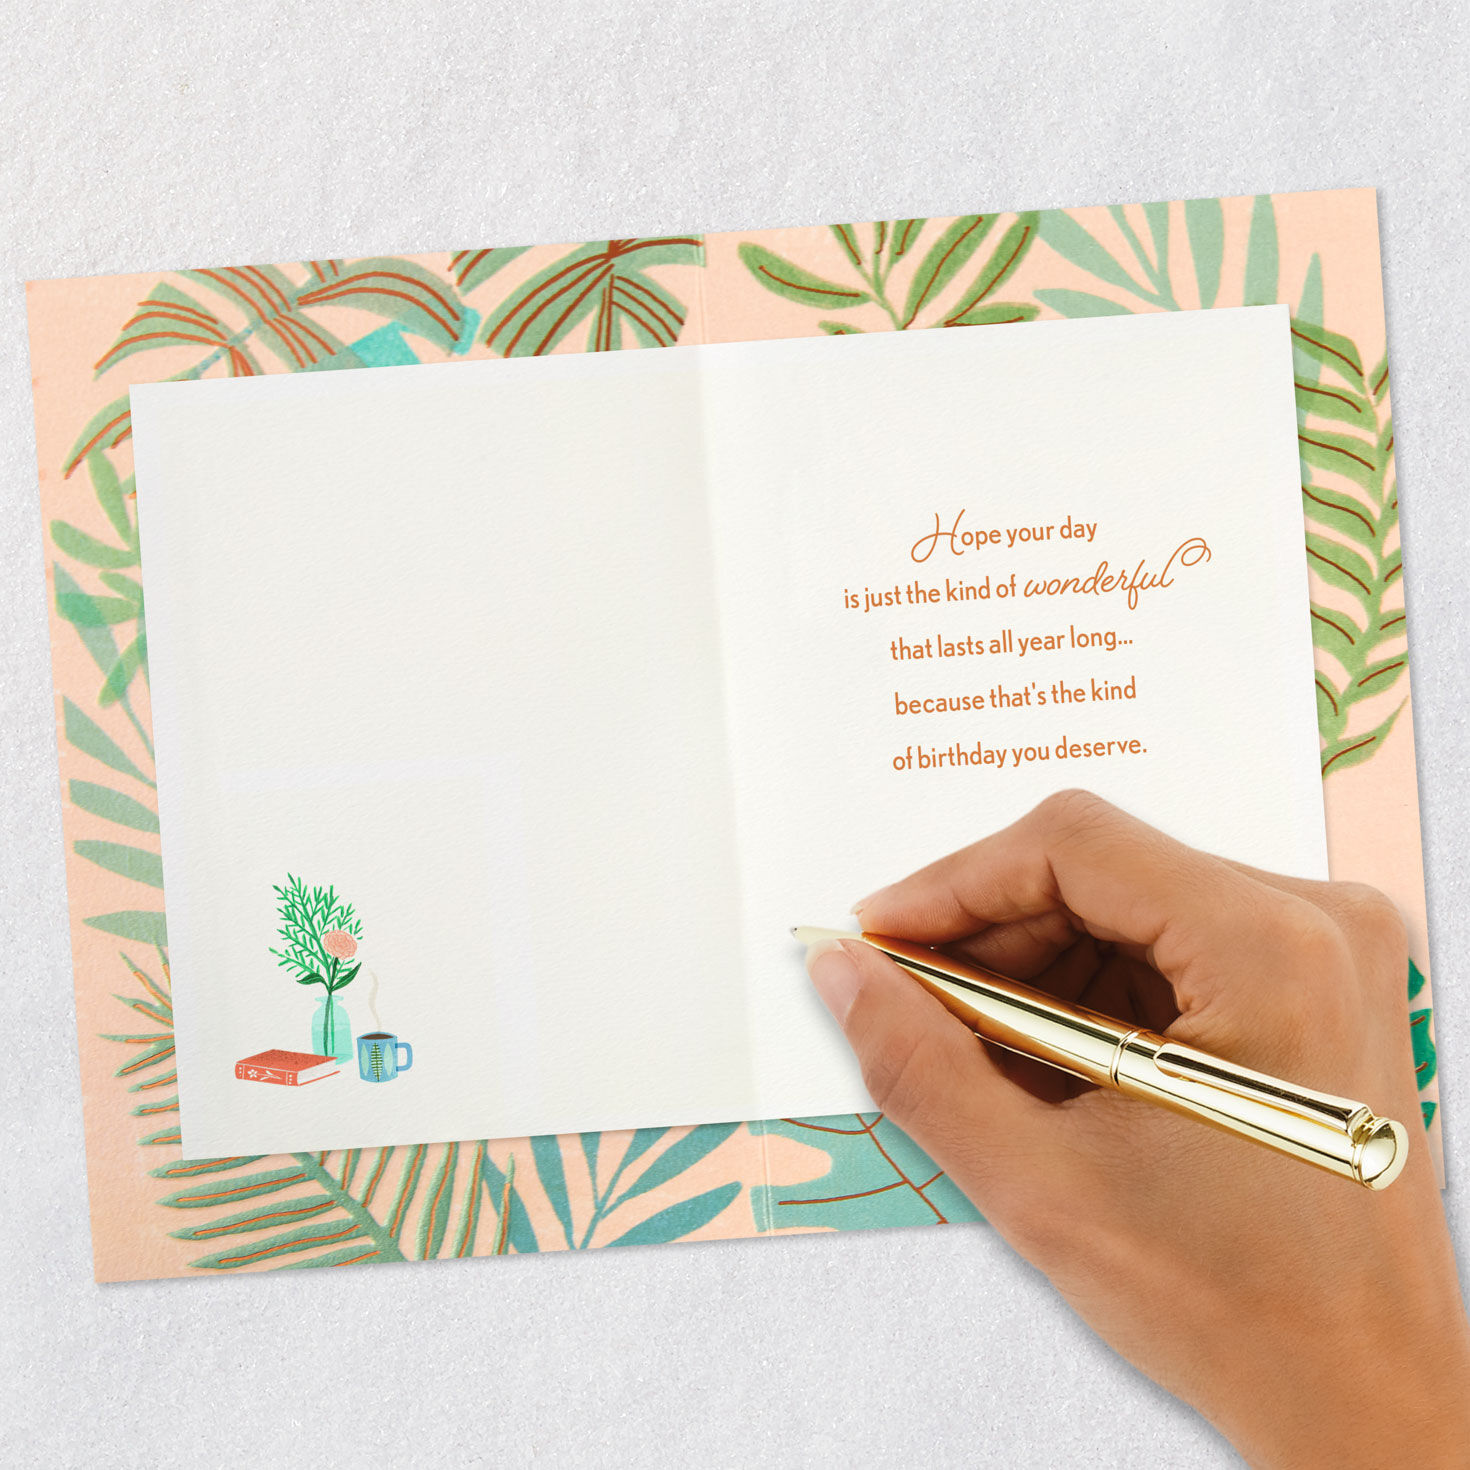 Hope your day
is just the kind of wonderful
that lasts all year long...
because that's the kind
of birthday you deserve.